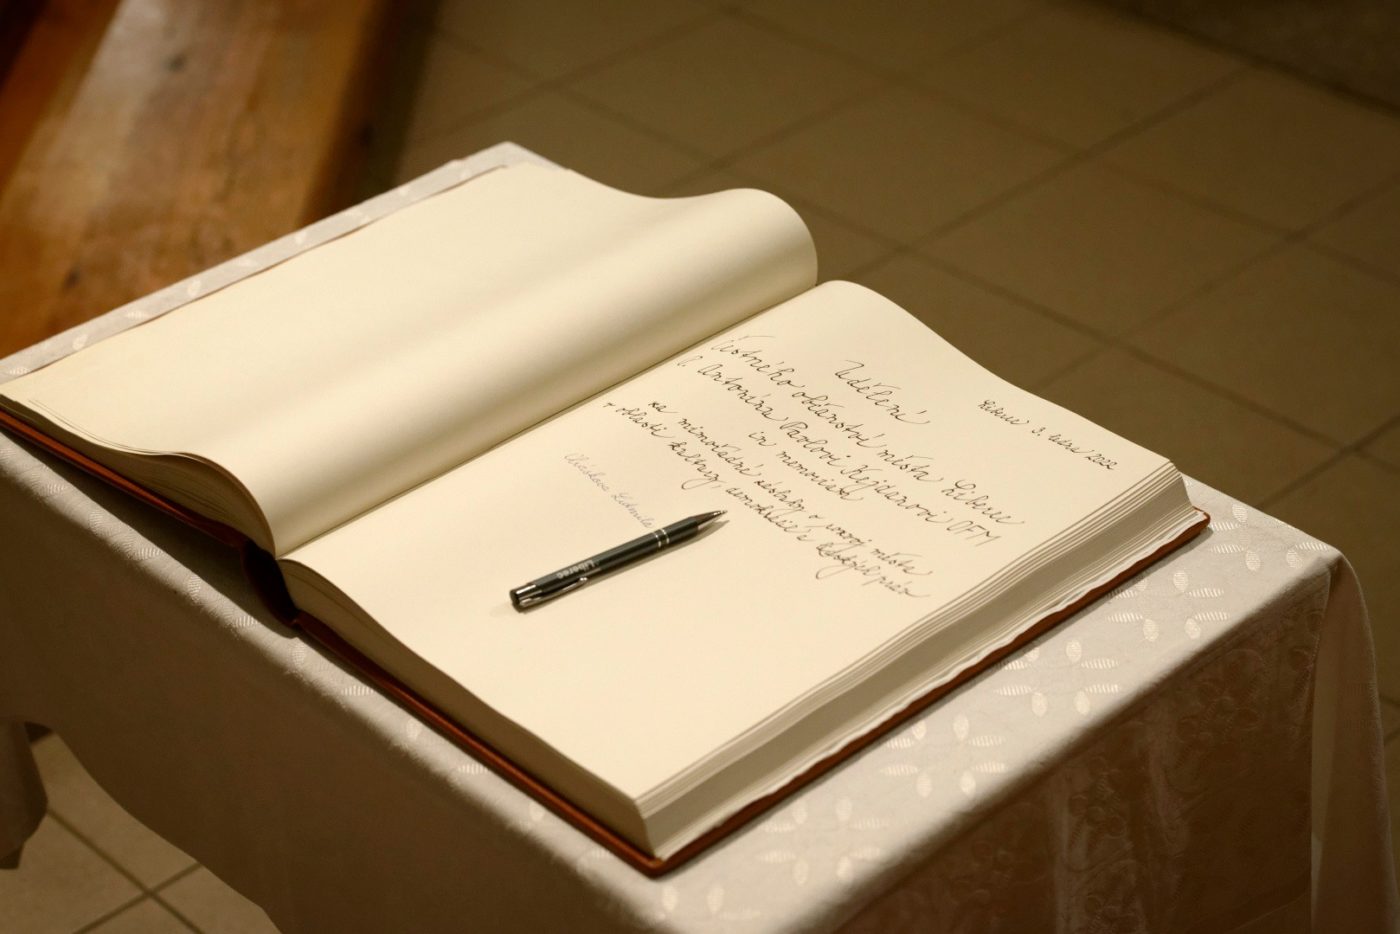 Liberec 3. února 2022
Udělení
Čestného občanství města Liberec
P. Antonínu Pavlovi Kejdanovi OFM
in memoriam
za mimořádné zásluhy o rozvoj města
v oblasti kultury, demokracie a lidských práv
Ludmila
Liberec